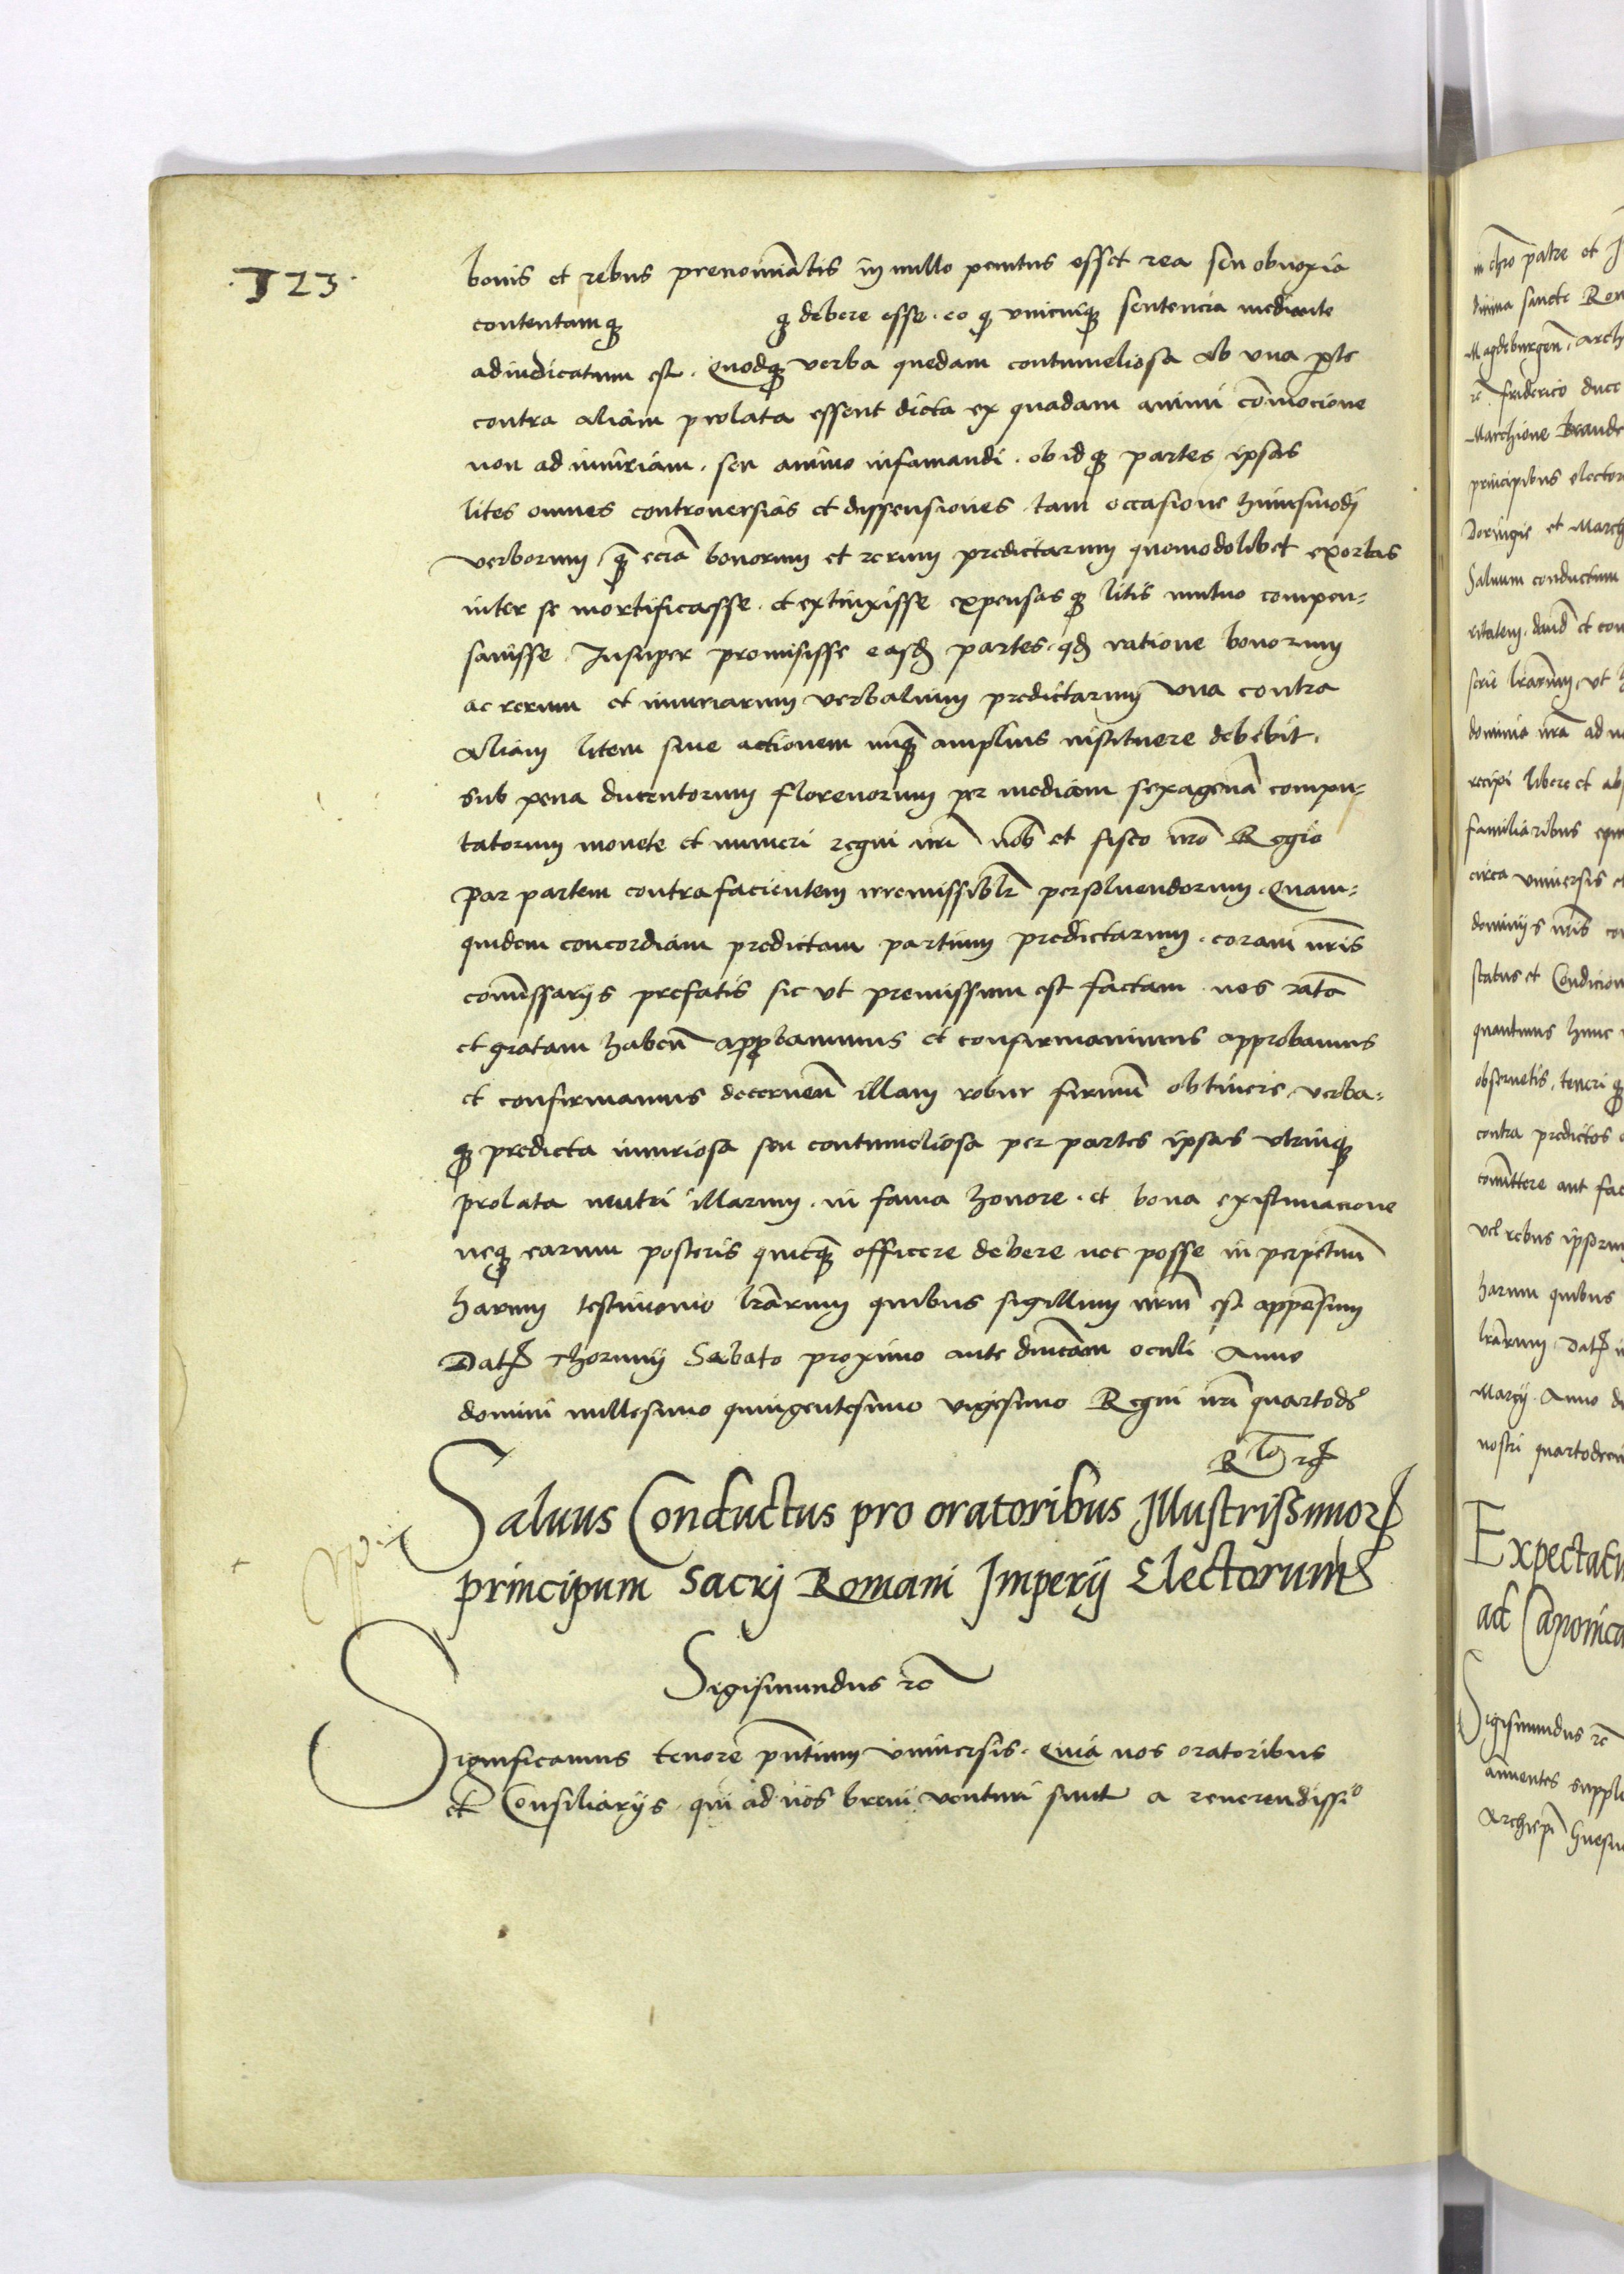 .123.
bonis et rebus prenomiatis in nullo penitus esset rea seu obnoxia
contentamq q debere esse . eo q unicuiq sentencia mediante
adiudicatum est . Quodq verba quedam contumeliosa ab una pte
contra aliam prolata essent dicta ex quadam animi comocione
non ad iniuriam . seu animo infamandi . ob idq partes ipsas
lites omnes controuersias et dissensiones tam occasione huiusmodi
verborum q ecia bonorum et rerum predictarum quomodolibet exortas
inter se mortificasse . et extinxisse expensasq litis mutuo compen=
sauisse . Insuper promisisse easd partes . qd ratione bonorum
ac rerum et iniuriarum verbalium predictarum una contra
aliam litem siue actionem nunq amplius instituere debebit .
sub pena ducentorum florenorum per mediam sexagena compu=
tatorum monete et numeri regni nri nob et fisco nro Regio
par partem contrafacientem irremissiblr persoluendorum . Quam=
quidem concordiam predictam partium predictarum . coram nris
comissarijs prefatis sic ut premissum est factam nos rata
et gratam haben approbauimus et confirmauimus approbamus
et confirmamus decernen illam robur firmu obtinere . verba=
q predicta iniuriosa seu contumeliosa per partes ipsas utrinq
prolata neutri illarum . in fama honore . et bona existimacione
neq earum posteris quicq officere debere nec posse in perpetuu
harum testimonio lrarum quibus sigillum nrm est appensum
Dat Thorunij Sabato proximo ante dnicam oculi Anno
domini millesimo quingentesimo vigesimo Regni nri quartod
Rto rc
Saluus Conductus pro oratoribus Illustrissimor
principum Sacrj Romani Imperij Electorum
Sigismundus rc
Significamus tenore pntium vniuersis . Quia nos oratoribus
et Consiliarijs . qui ad nos breui venturi sunt a reuerendissio
in chro patre et
Magdeburgen . arch
rc friderico duce
Marchione Brande
principibus elector
Doringie et March
Saluum conductum
ritatem . dand et con
serie lrarum, ut
dominia nra ad n
recipi libere et ab
familiaribus equ
circa vniuersis e
dominijs nris co
status et Condicion
quantenus hunc
obseruetis, teneriq
contra predictos
comittere aut fac
vel rebus ipsorum
harum quibus
lrarum . Dat
Marcij . Anno d
nostri quartodeci
Expectatu
ad Canonica
Sigismundus rc
annuentes supple
Archiepi Gnesn